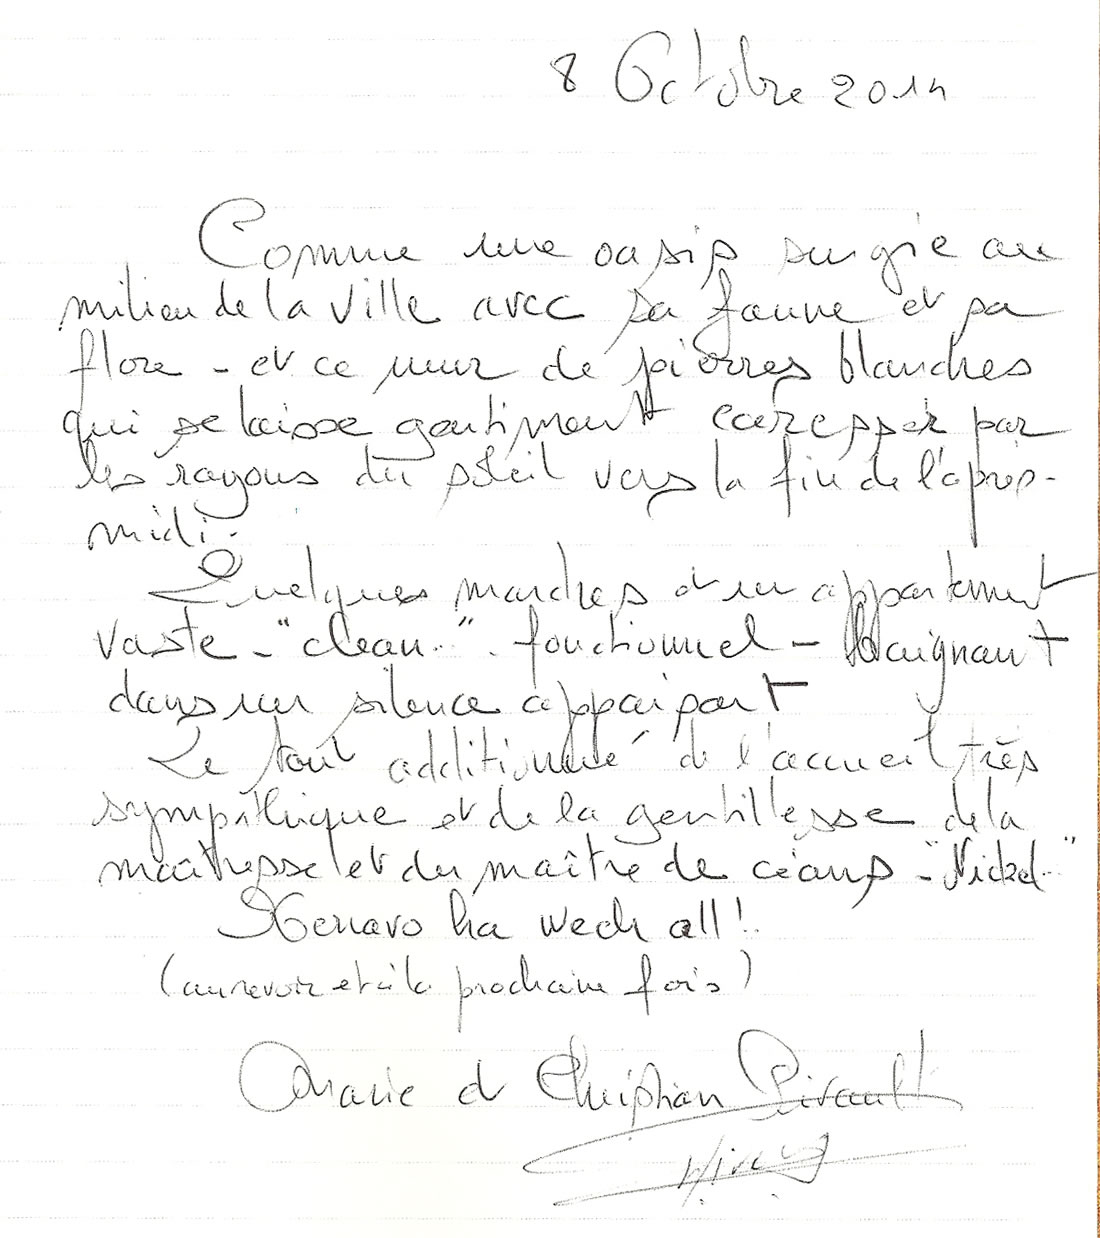 8 Octobre 2014
Comme une oasis surgie au
milieu de la ville avec sa faune et sa
flore - et ce mur de pierres blanches
qui se laisse gentiment caresser par
les rayons du soleil vers la fin de l'après-
midi.
Quelques marches et un appartement
vaste - "clean..". fonctionnel - baignant
dans un silence appaisant
Le tout additionné de l'accueil très
sympathique et de la gentillesse de la
maîtresse et du maître de céans - "Nickel.."
Kenavo ha wech all !
(au revoir et à la prochaine fois)
Marie et Christian